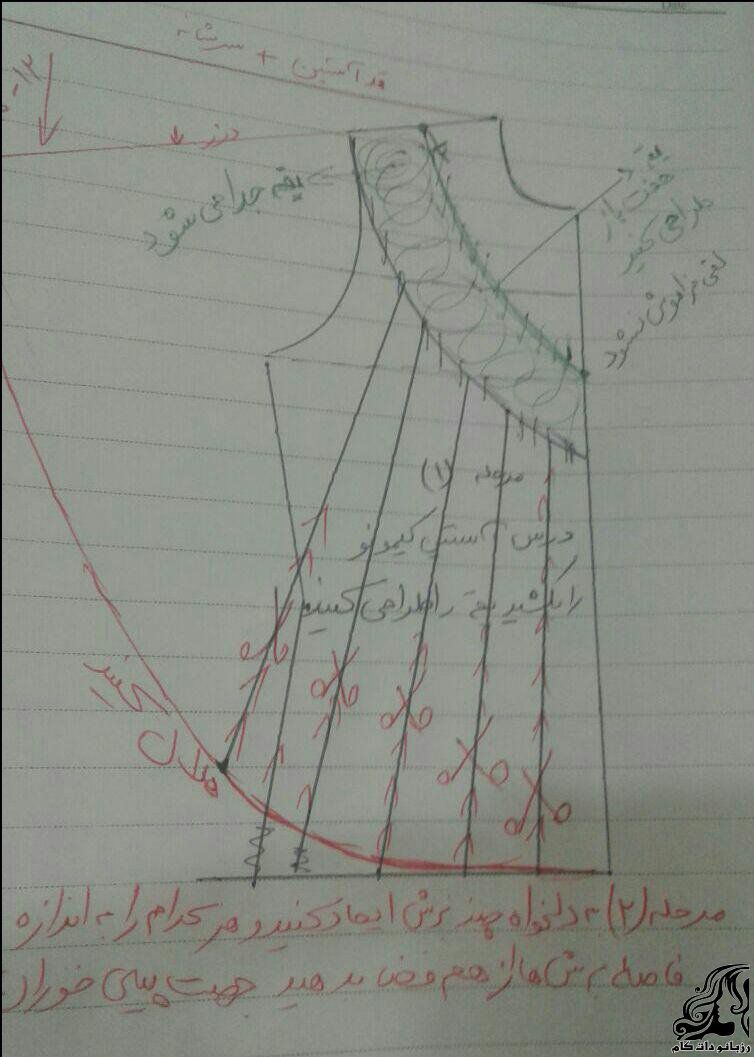 قد آستین + سرشانه
درز
یقه جدا می شود
یقه
هفت باز
طراحی کنید
فراموش نشود
مرحله (۱)
درس آستین کیمونو
را بکشید یقه را طراحی کنید
هلال کنید
مرحله (۲) به دلخواه چند برش ایجاد کنید و هر کدام را به اندازه
فاصله برش ها از هم فضا بدهید جهت پیلی خوران
زیبانودات کام